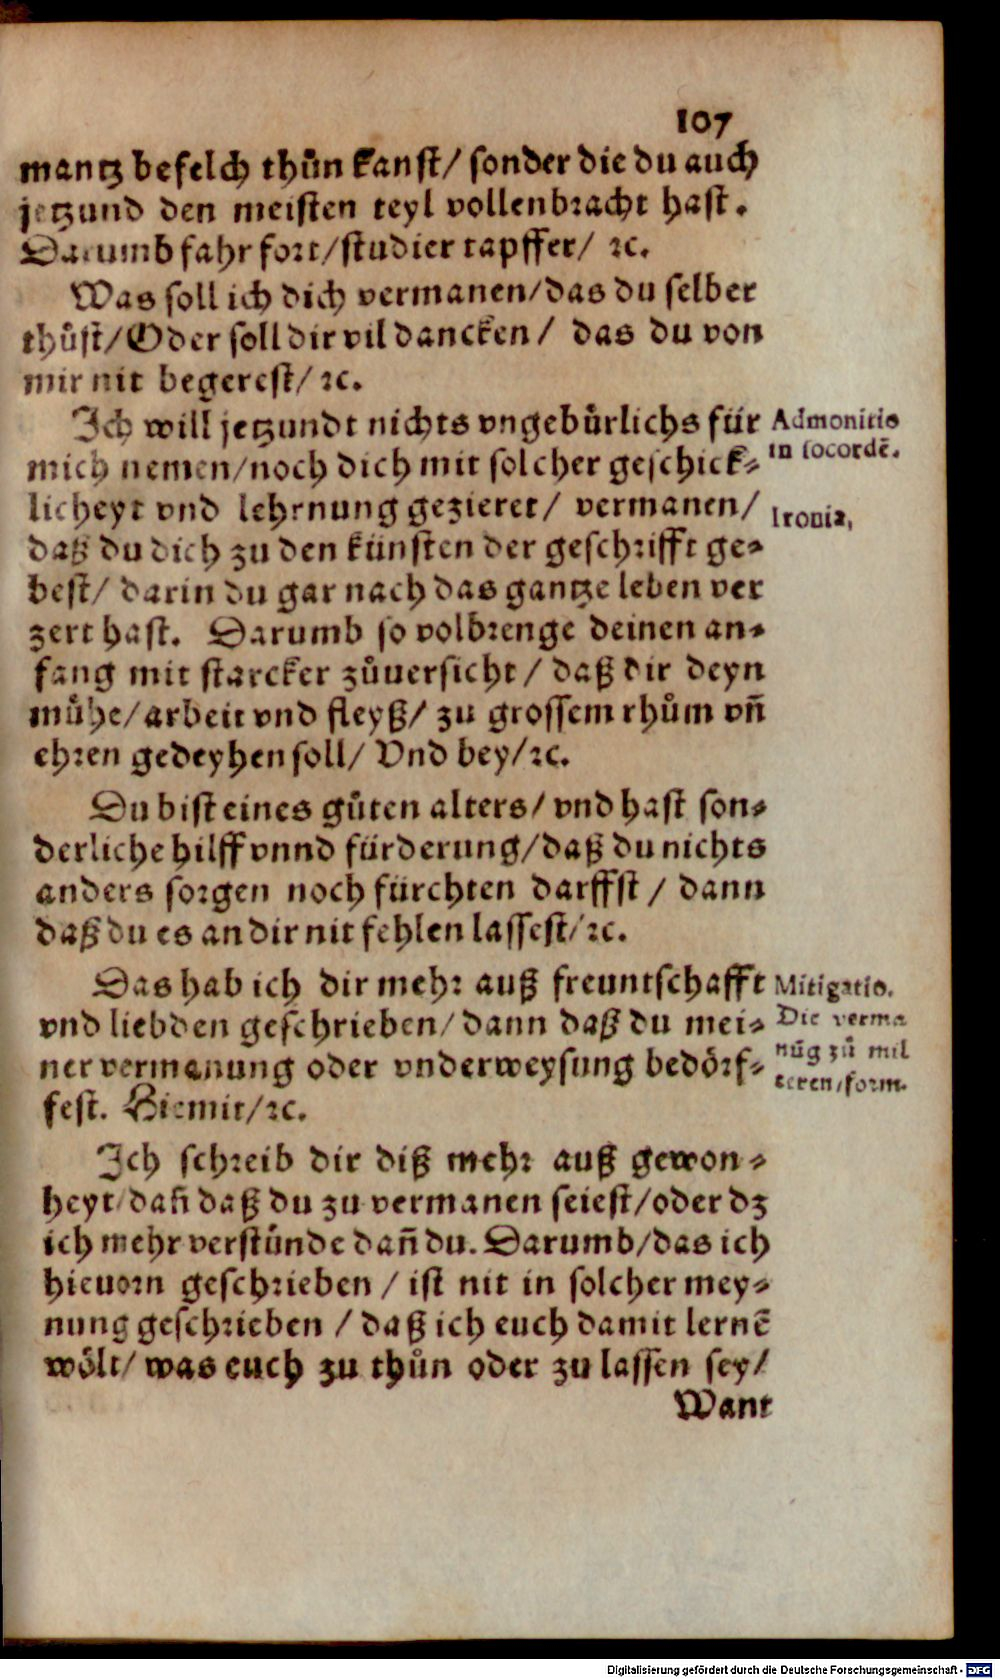 107
mantz befelch thůn kanst/ sonder die du auch
jetzund den meisten teyl vollenbracht hast.
Darumb fahr fort/studier tapffer/ ꝛc.
Was soll ich dich vermanen/das du selber
thůst/Oder soll dir vil dancken/ das du von
mir nit begerest/ꝛc.
Ich will jetzundt nichts vngebürlichs für
Admonitio
mich nemen/noch dich mit solcher geschick⸗
in socordē.
licheyt vnd lehrnung gezieret/ vermanen/
Ironia,
daß du dich zu den künsten der geschrifft ge⸗
best/ darin du gar nach das gantze leben ver
zert hast. Darumb so volbrenge deinen an⸗
fang mit starcker zůuersicht/ daß dir deyn
mühe/arbeit vnd fleyß/ zu grossem rhům vñ
ehren gedeyhen soll/ Vnd bey/ꝛc.
Du bist eines gůten alters/ vnd hast son⸗
derliche hilff vnnd fürderung/daß du nichts
anders sorgen noch fürchten darffst/ dann
daß du es an dir nit fehlen lassest/ꝛc.
Das hab ich dir mehr auß freuntschafft
Mitigatio.
vnd liebden geschrieben/dann daß du mei⸗
Die verma
ner vermanung oder vnderweysung bedörf⸗
nūg zů mil
fest. Hiemit/ꝛc.
teren/form.
Ich schreib dir diß mehr auß gewon⸗
heyt/dañ daß du zu vermanen seiest/oder dz
ich mehr verstünde dañ du. Darumb/das ich
hieuorn geschrieben/ ist nit in solcher mey⸗
nung geschrieben/ daß ich euch damit lernē
wölt/ was euch zu thůn oder zu lassen sey/
Want
Digitalisierung gefördert durch die Deutsche Forschungsgemeinschaft - DFG